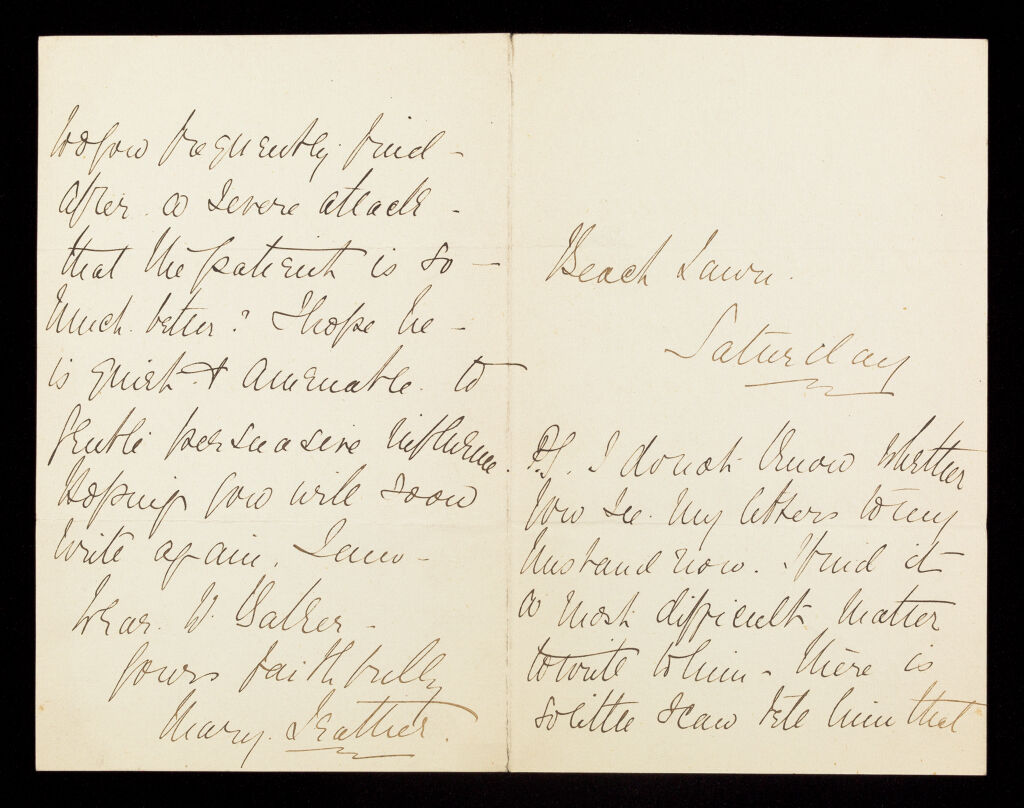 Do you frequently find -
after a severe attack -
that the patient is so -
much better? I hope he -
is quiet & amenable to
gentle persuasive influence.
Hoping you will soon
write again. I am -
Dear D.
yours faithfully
Mary Leather.
Beach Lawn.
Saturday
P.S. I do not know whether
you see my letters to my
husband now. I find it
a most difficult matter
to write to him - there is
so little I can tell him that